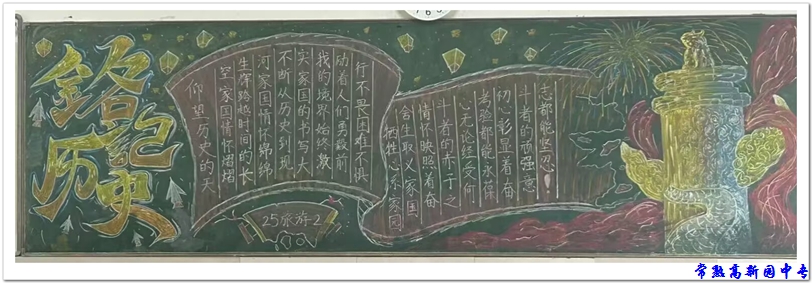 铭记
历史
仰望历史的天
空家国情怀熠熠
生辉跨越时间的长
河家国情怀绵绵
不断从历史到现
实家国的书写大
我的境界始终激
动着人们勇毅前
行不畏困难不惧
牺牲心系家国
舍生取义家国
情怀映照着奋
斗者的赤子之
心无论经受何
考验都能永葆
初心彰显着奋
斗者的顽强意
志都能坚忍！
25旅游2
常熟高新园中专